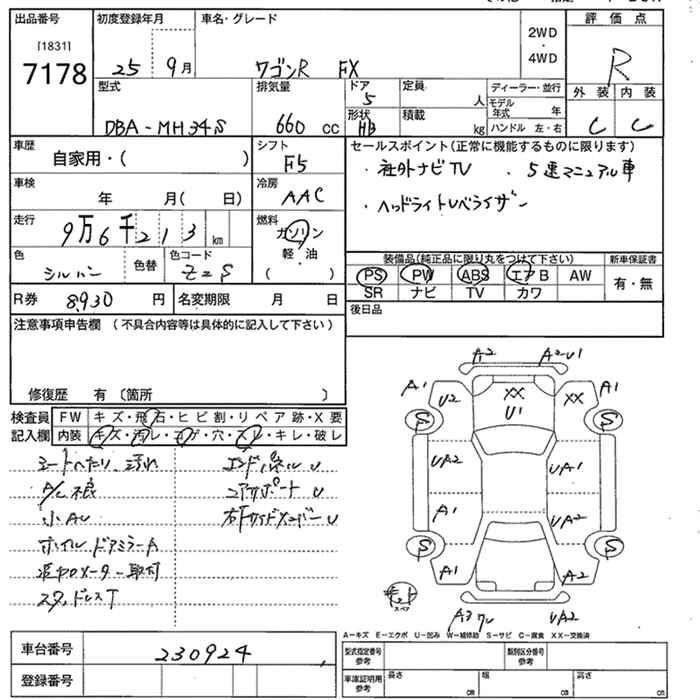 出品番号
[1831]
7178
初度登録年月
25 9月
車名・グレード
ワゴンR FX
2WD
・
4WD
評価点
R
外装 内装
C C
型式
DBA-MH34S
排気量
660 cc
ドア
5
形状
HB
定員
人
積載
kg
ディーラー・並行
モデル年式 年
ハンドル 左・右
車歴
自家用・( )
シフト
F5
車検
年 月( 日)
冷房
AAC
走行
9万6千213 km
燃料
ガソリン
軽・油
( )
色
シルバー
色替
色コード
Z2S
R券 8,930 円
名変期限 月 日
セールスポイント(正常に機能するものに限ります)
・社外ナビTV ・5速マニュアル車
・ヘッドライトレベライザー
装備品(純正品に限り丸をつけて下さい)
PS PW ABS エアB AW
SR ナビ TV カワ
新車保証書
有・無
後日品
注意事項申告欄 (不具合内容等は具体的に記入して下さい)
修復歴 有 〔箇所 〕
検査員記入欄
FW キズ・飛石・ヒビ割・リペア跡・X要
内装 キズ・汚レ・コゲ・穴・スレ・キレ・破レ
シートへたり、汚れ
A/C不良
小AU
ホイルドアミラーA
追加メーター取付
スタッドレスT
エンドパネルU
コアサポートU
右Fサイドメンバー U
A2 A2-U1
A1 U2 XX U1 XX A1
S S
UA2 UA1
A1 UA2
S S
A1 A2
スペア
A3ワレ UA2
A-キズ E-エクボ U-凹み W-補修跡 S-サビ C-腐食 XX-交換済
車台番号 230924
登録番号
型式指定番号
参考
類別区分番号
参考
車庫証明用
参考
長さ cm
幅 cm
高さ cm